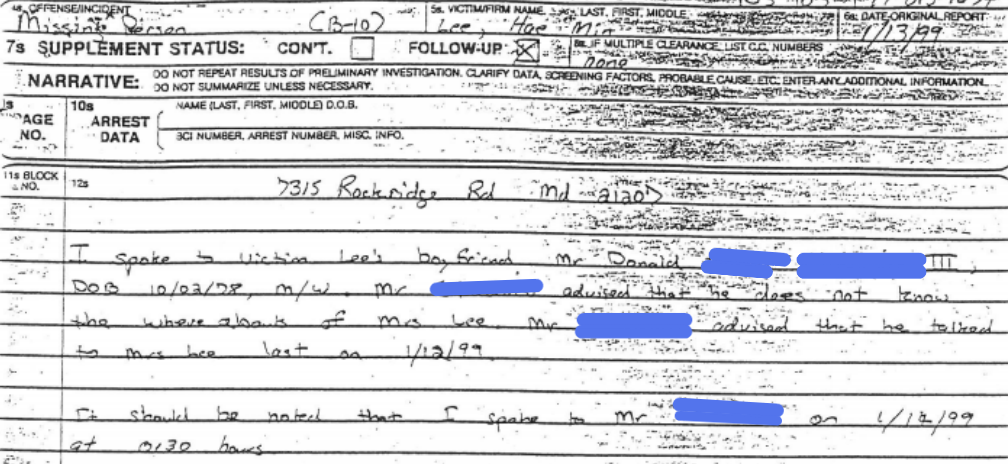 4s OFFENSE/INCIDENT 5s. VICTIM/FIRM NAME LAST, FIRST, MIDDLE 6s DATE ORIGINAL REPORT
Missing Person (B-10) Lee, Hae Min 1/13/99
7s SUPPLEMENT STATUS: CON'T. FOLLOW-UP X 8s. IF MULTIPLE CLEARANCE, LIST C.C. NUMBERS
none
NARRATIVE: DO NOT REPEAT RESULTS OF PRELIMINARY INVESTIGATION. CLARIFY DATA, SCREENING FACTORS, PROBABLE CAUSE, ETC. ENTER ANY ADDITIONAL INFORMATION.
DO NOT SUMMARIZE UNLESS NECESSARY.
9s PAGE NO. 10s ARREST DATA NAME (LAST, FIRST, MIDDLE) D.O.B.
BCI NUMBER, ARREST NUMBER, MISC. INFO.
11s BLOCK NO. 12s
7315 Rockridge Rd Md 21207
I spoke to victim Lee's boyfriend Mr Donald III,
DOB 10/03/78, m/w. Mr advised that he does not know
the whereabouts of Mrs Lee. Mr advised that he talked
to Mrs Lee last on 1/12/99.
It should be noted that I spoke to Mr on 1/14/99
at 0130 hours